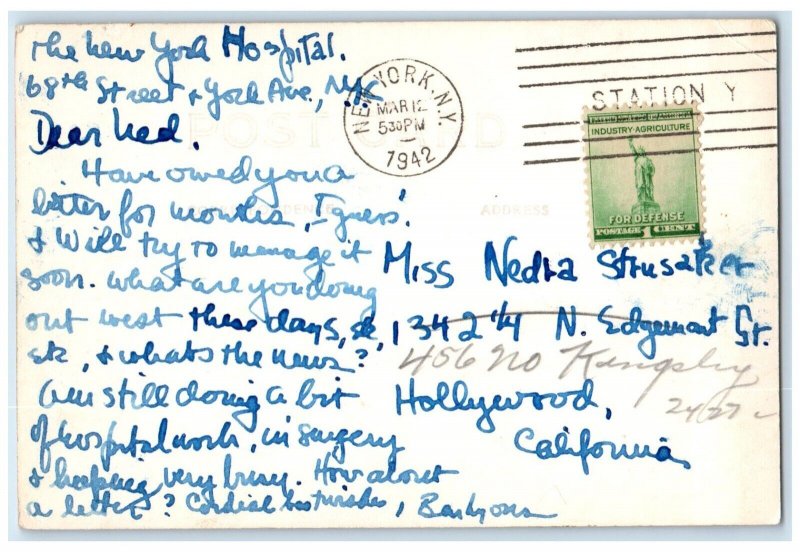 The New York Hospital.
68th Street & York Ave., N.Y.C.
Dear Ned.
Have owed you a
letter for months, I guess!
& will try to manage it
soon. What are you doing
out west these days, etc,
etc, & whats the news?
Am still doing a bit
of hospital work, in surgery
& keeping very busy. How about
a letter? Cordial best wishes,
POST CARD
CORRESPONDENCE
ADDRESS
NEW YORK, N.Y.
MAR 12
530 PM
1942
STATION Y
INDUSTRY-AGRICULTURE
FOR DEFENSE
POSTAGE 1 CENT
Miss Nedra
1342 1/4 N. Edgemont St.
456 No Kingsley
Hollywood,
California